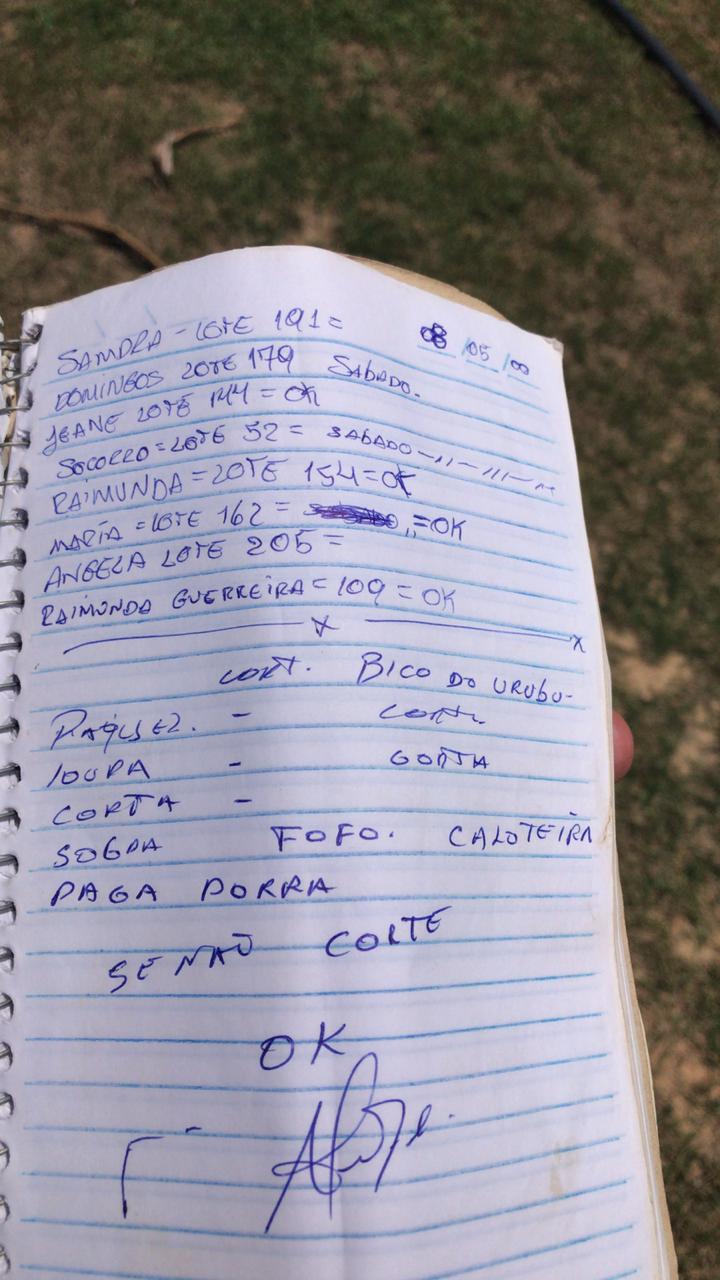 SANDRA - LOTE 191 = 08 / 05 / 00
DOMINGOS LOTE 179 SABADO.
JEANE LOTE 144 = OK
SOCORRO = LOTE 52 = SABADO
RAIMUNDA = LOTE 154 = OK
MARIA = LOTE 162 = = OK
ANGELA LOTE 205 =
RAIMUNDA GUERREIRA = 109 = OK
CORT. BICO DO URUBU-
RAQUEL. -
LOURA - GORTA
CORTA -
SOGRA FOFO. CALOTEIRA
PAGA PORRA
SE NÃO CORTE
OK